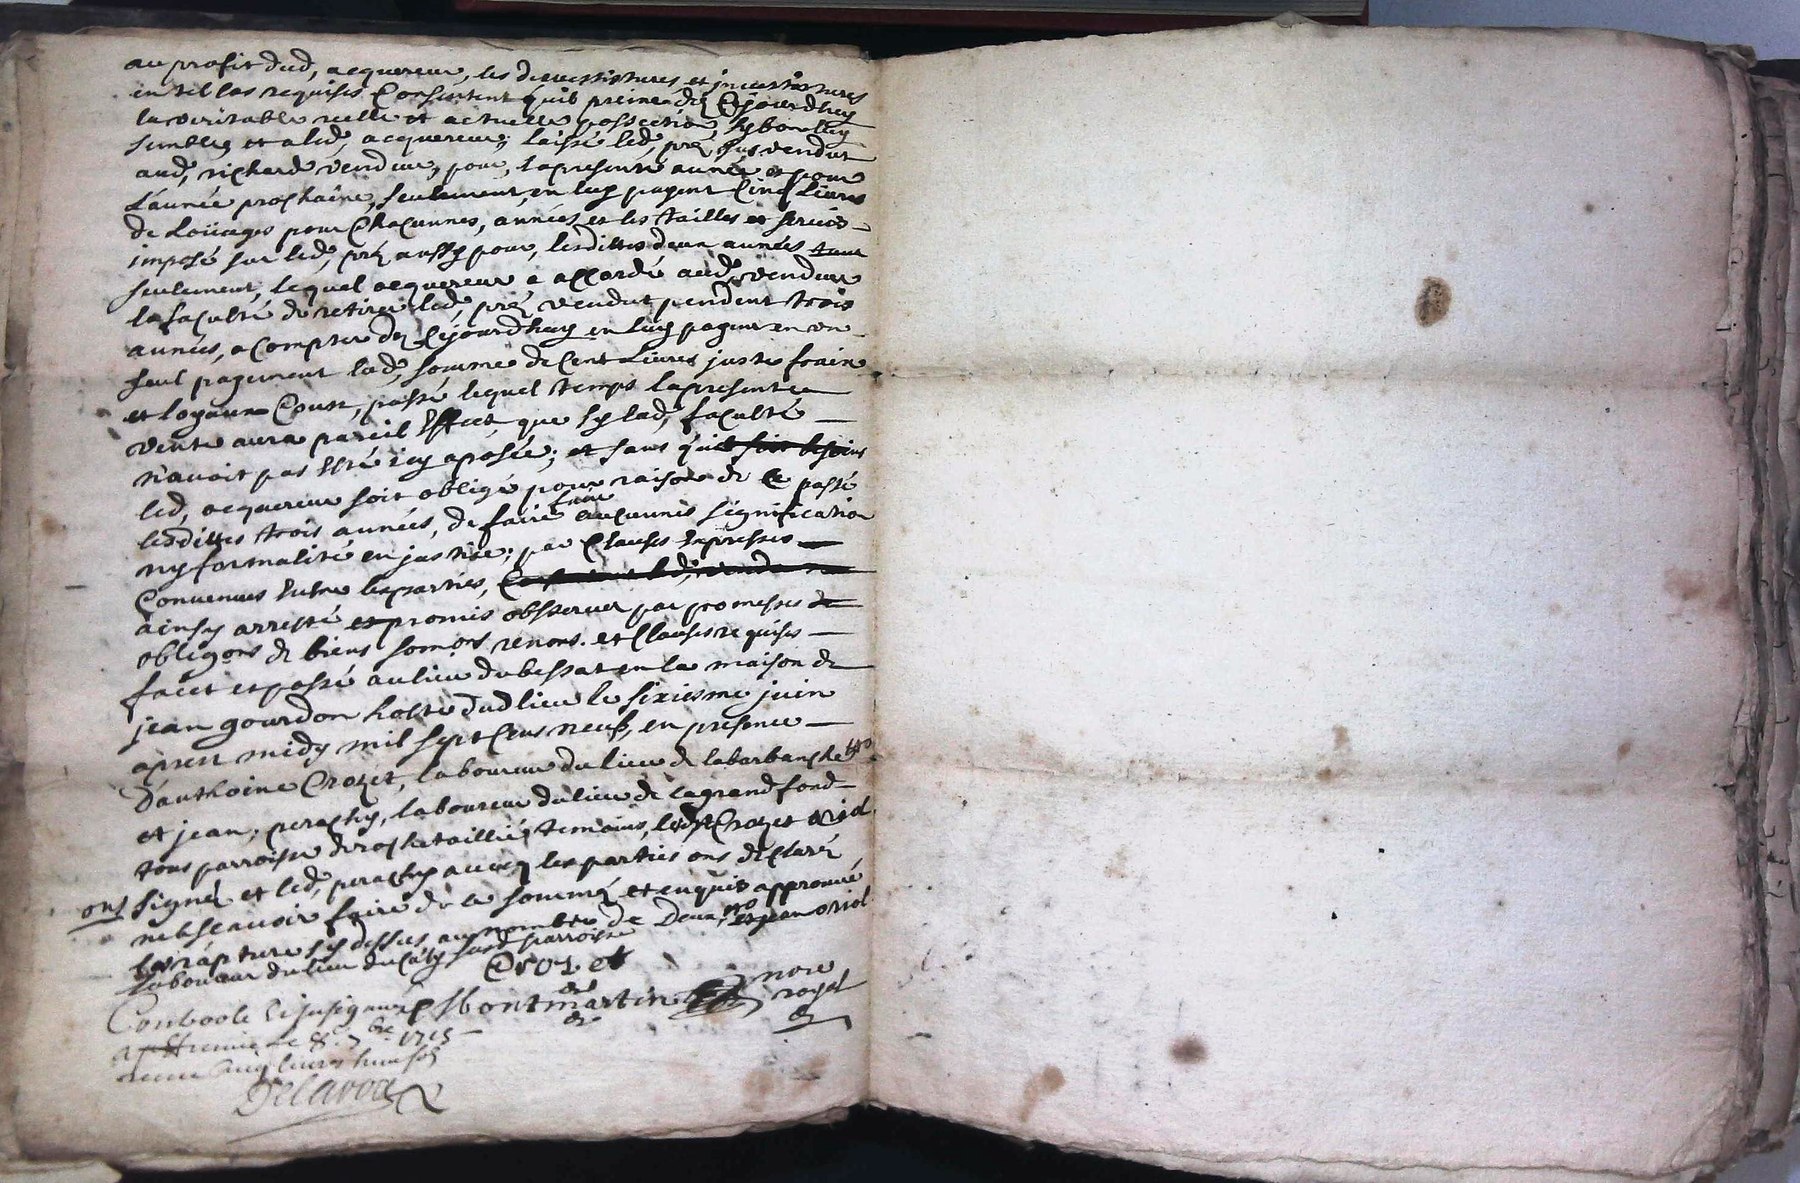 au profit dud, acquereur, les devestitures et investitures
en tel cas requises Consentent quil preine dez Cejourdhuy
la veritable reelle et actuelle possection sy bon luy
semble, et aled, acquereur, laissé led, pré sus vendut
aud, richard vendeur, pour, la presente année et pour
L'année prochaine, seulement, en luy payent Cinq Livres
de Loüages pour Chacunnes, années et les tailles et servis
imposé sur led, pré aussy pour, lesdittes deux années tant
seulement, lequel acquereur a accordé aud, vendeur
la faculté de retirer led, pré vendut pendent trois
années, a Compter dez Cejourdhuy en luy payent en un
seul payement lad, somme de Cent Livres juste frain
et loyaux Coust, passé lequel temps la presente
vente aura pareil Effect que sy lad, faculté
n'avoit pas Esté icy aposée; et sans que
led, acquereur soit obligé pour raison de ce passé
lesdittes trois années, de faire aucunnes signification
ny formalité en justice; par Clauses Expresses
Convenues Entre les parties,
ainsy arresté et promis observer par promesses
obligons de biens somons renons. et Clauses requises
faict et passé au lieu du bessat en la maison de
jean gourdon hoste dud lieu le sixiesme juin
apres midy mil sept Cens neuf, en presence
d'anthoine Crozet, laboureur du lieu de labarbanche
et jean, perachy, laboureur du lieu de lagrandfond
tous parroisse de rochetaillié temoins, ledt Crozet oriol
ont signé et led, perachy avecq les parties ons declaré
ne scavoir faire de ce sommé et enquis approuvé
la rapture sy dessus au nombre de Deux, et jean oriol
laboureur du lieu du parroisse
Crozet
Montmartin nore
royal
Controole
Le 8e 7bre 1715
livres huit sol
Delavoix